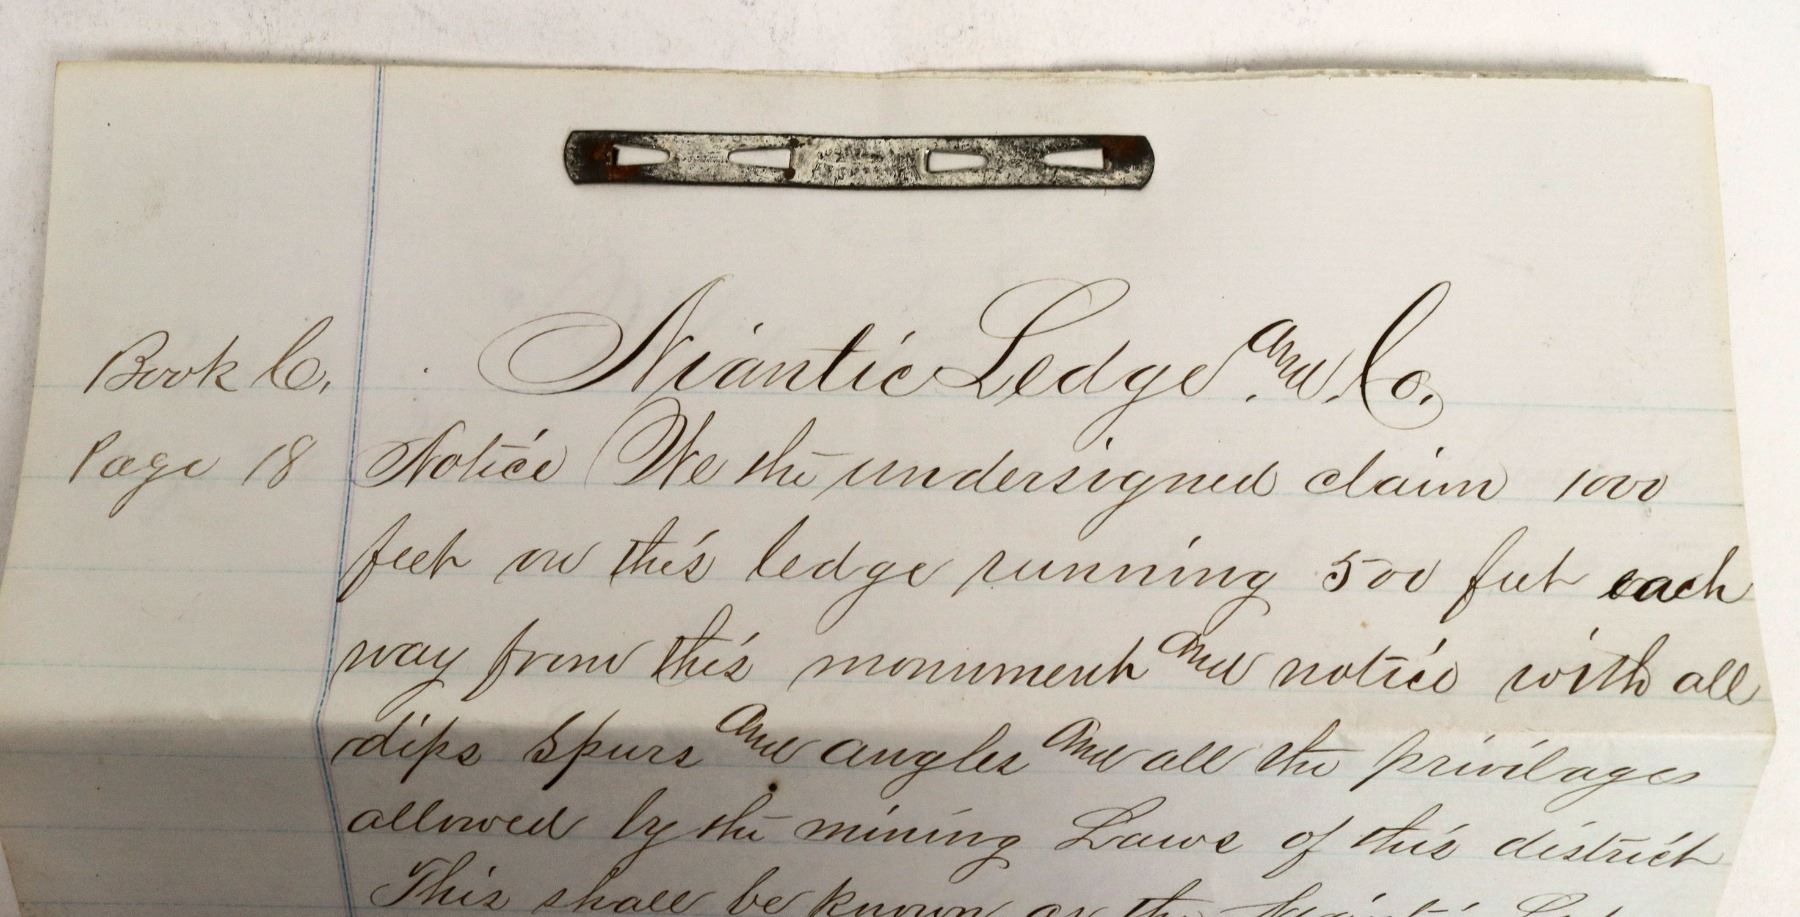 Niantic Ledge and Co.
Book C.
Page 18
Notice We the undersigned claim 1000
feet on this ledge running 500 feet each
way from this monument and notice with all
dips spurs and angles and all the privilages
allowed by the mining Laws of this district
This shall be known as the Niantic